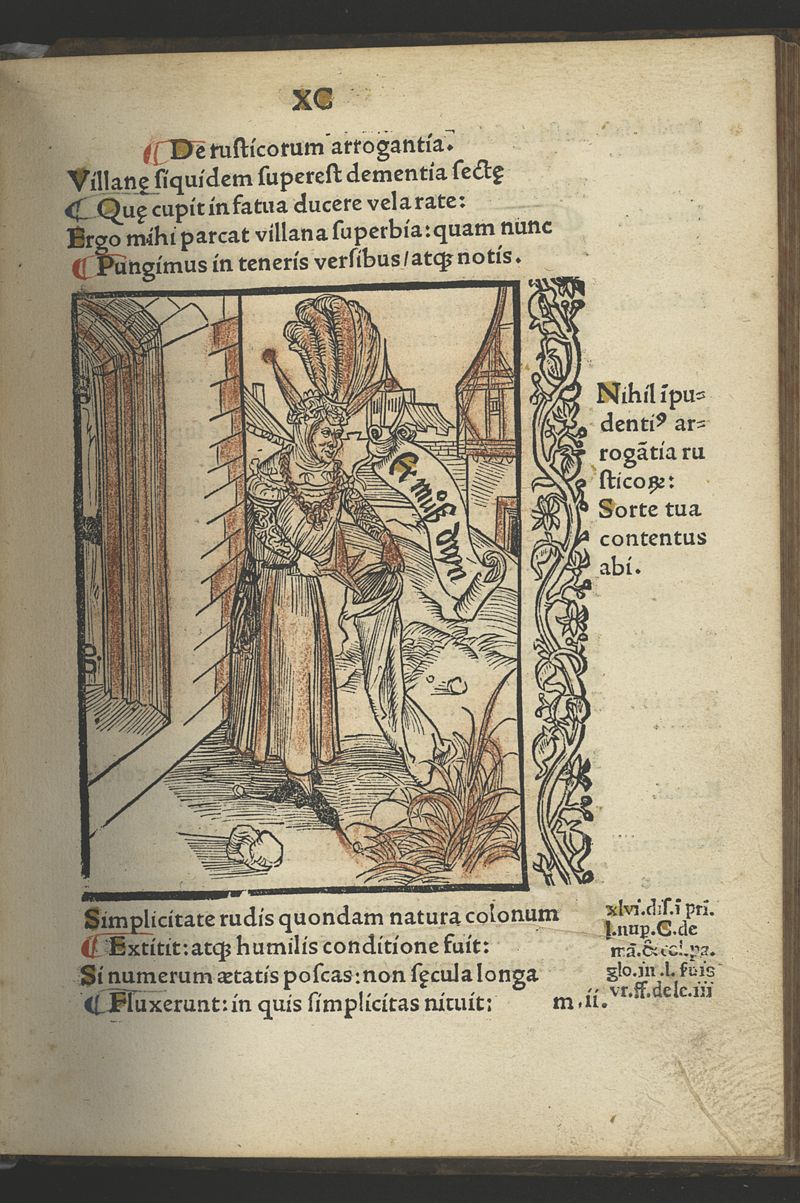 XC
De rusticorum arrogantia.
Villanę siquidem superest dementia sectę
Quę cupit in fatua ducere vela rate:
Ergo mihi parcat villana superbia: quam nunc
Pungimus in teneris versibus/atqꝫ notis.
Er muͦß dran
Nihil īpu⸗
dentiꝰ ar⸗
rogātia ru
sticoꝝ:
Sorte tua
contentus
abi.
Simplicitate rudis quondam natura colonum
Extitit: atqꝫ humilis conditione fuit:
Si numerum ætatis poscas: non sęcula longa
Fluxerunt: in quis simplicitas nituit:
m.ii.
xlvi.dis.ī pri.
l.nup.C.de
glo.in .l. fūis
vr.ff.de le.iii